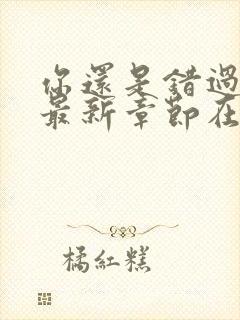 你還是錯過
最新章節在
橘紅糕